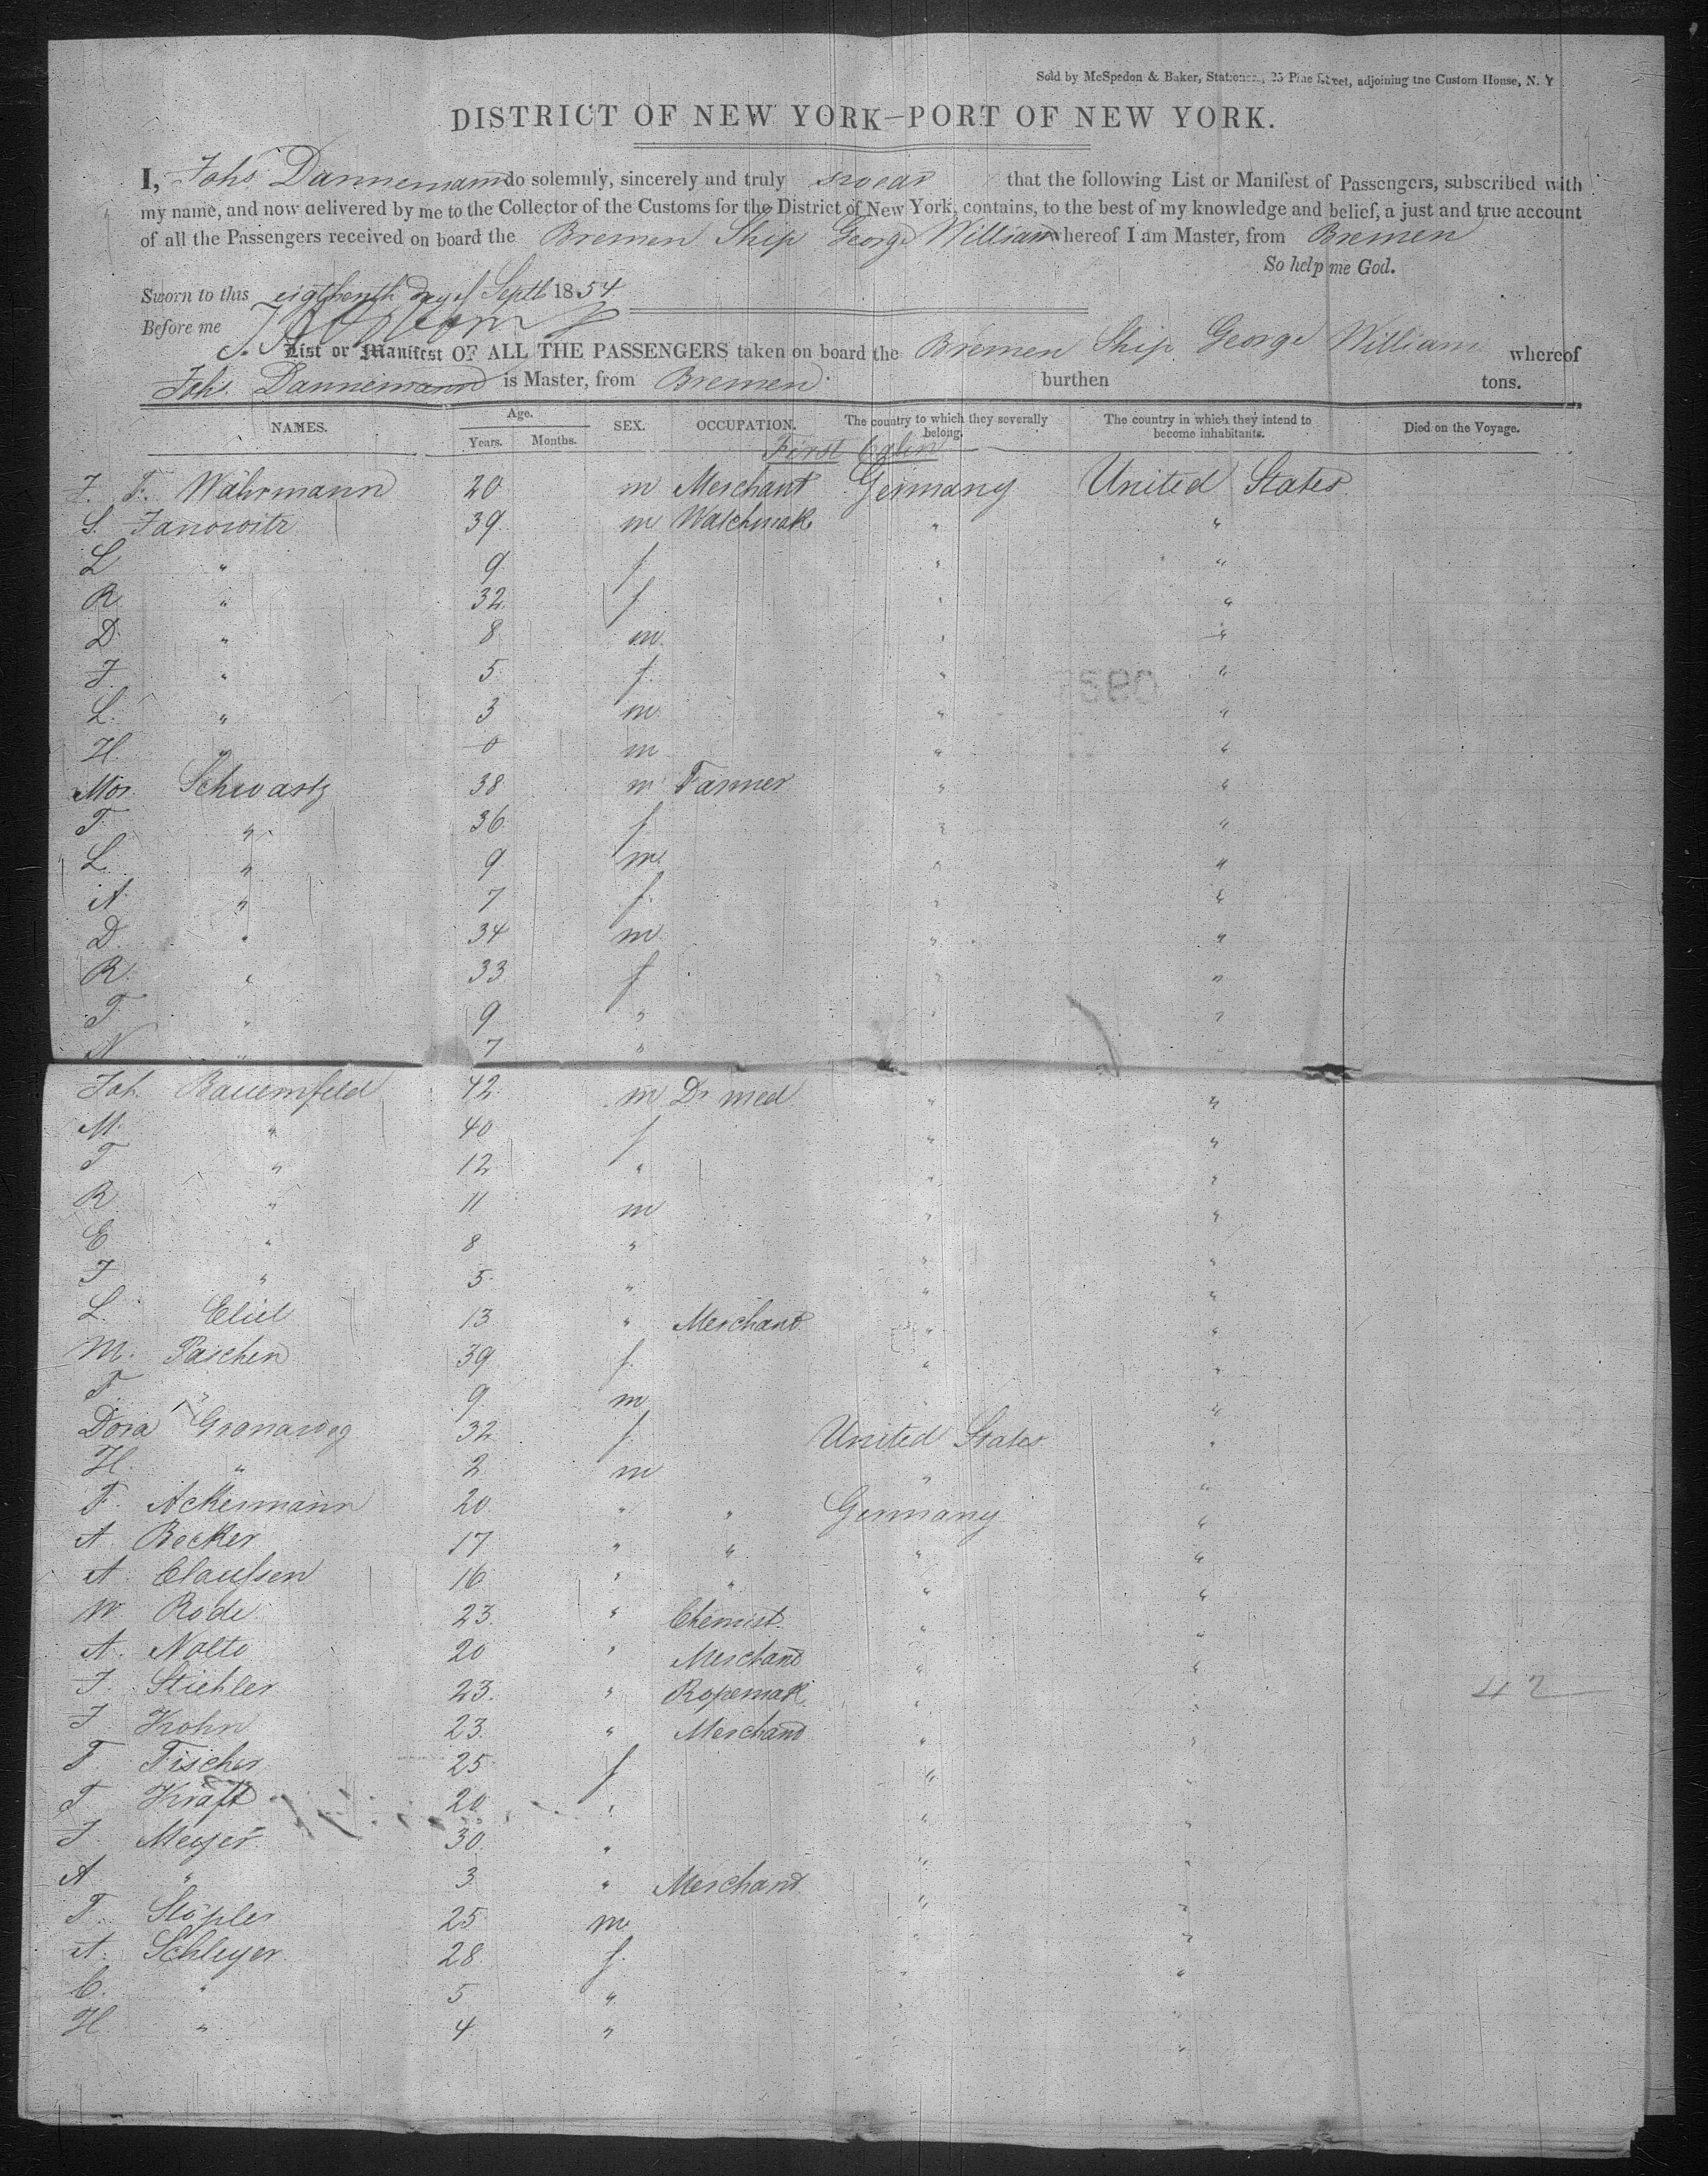 Sold by McSpedon & Baker, Stationers, 25 Pine Street, adjoining the Custom House, N. Y
DISTRICT OF NEW YORK—PORT OF NEW YORK.
I, Johs Dannemann do solemnly, sincerely and truly swear that the following List or Manifest of Passengers, subscribed with
my name, and now delivered by me to the Collector of the Customs for the District of New York, contains, to the best of my knowledge and belief, a just and true account
of all the Passengers received on board the Bremen Ship George William whereof I am Master, from Bremen
So help me God.
Sworn to this eigthenth day of Septb 1854
Before me
List or Manifest OF ALL THE PASSENGERS taken on board the Bremen Ship George William whereof
Johs. Dannemann is Master, from Bremen. burthen tons.
NAMES. Age. Years. Months. SEX. OCCUPATION. The country to which they severally belong. The country in which they intend to become inhabitants. Died on the Voyage.
First Cabin
J. F. Wahrmann 20 m Merchant Germany United States
S. Janowitz 39 m Watchmak. " "
L " 9 f " "
R " 32 f " "
D " 8 m " "
J. " 5 f " "
L. " 3 m " "
H. " 0 m " "
Mos. Schwartz 38 m Tanner " "
T. " 36 f " "
L. " 9 m " "
A. " 7 f " "
D. " 34 m " "
R. " 33 f " "
T. " 9 " " "
N " 7 "
Joh. Bauernfeld 42 m Dr med " "
M. " 40 f " "
T " 12 " " "
R " 11 m " "
E " 8 " " "
J " 5 " " "
L. Eliel 13 " Merchant " "
M. Paschen 39 f " "
F. " 9 m " "
Dora Gronaweg 32 f United States "
H. " 2 m " "
F. Ackermann 20 " " Germany "
A Becker 17 " " " "
A. Claussen 16 " " " "
W Rode 23 " Chemist " "
A. Nolte 20 " Merchant " "
J. Stiehler 23 " Ropemak. " "
J Krohn 23 " Merchant " "
F Fischer 25 f " "
T Kraft 20 " " "
J. Meyer 30 " " "
A " 3 " Merchant " "
F. Stöpler 25 m " "
A. Schleyer 28 f " "
C. " 5 " " "
H " 4 " "
42